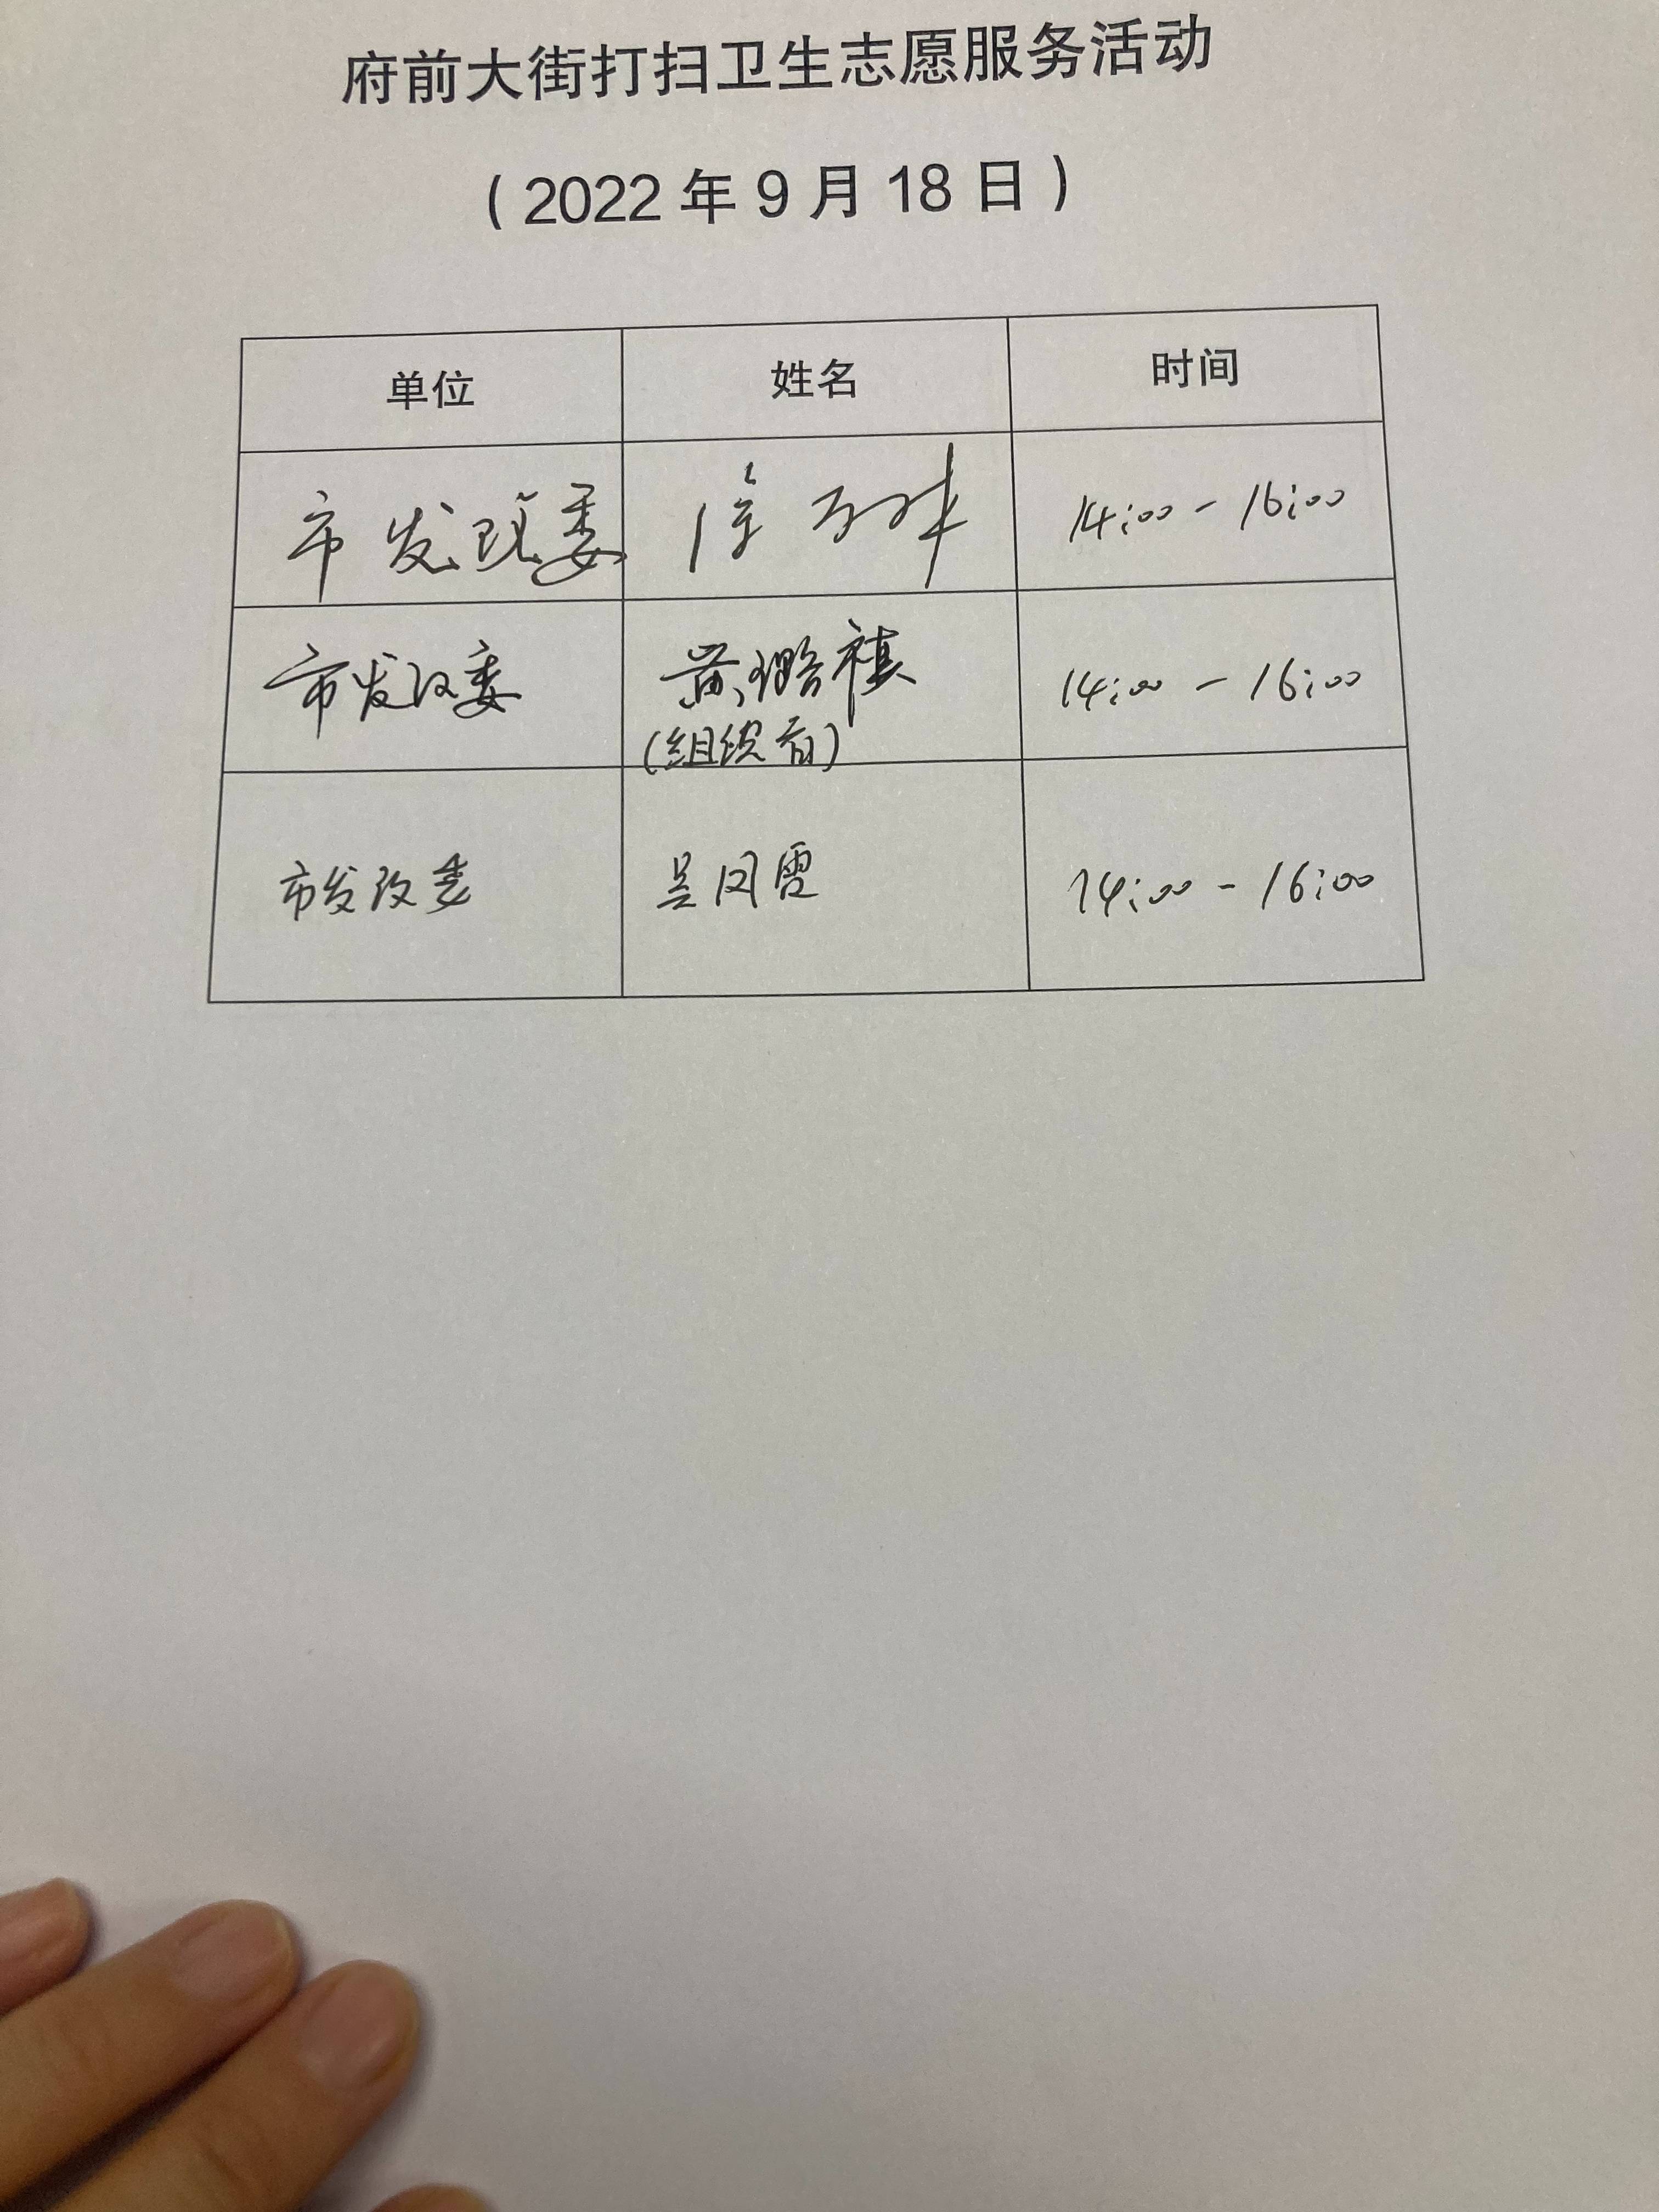 府前大街打扫卫生志愿服务活动
（2022年9月18日）
单位 姓名 时间
市发改委 14:00-16:00
市发改委 黄璐祺 14:00-16:00
(组织者)
市发改委 吴凤霞 14:00-16:00